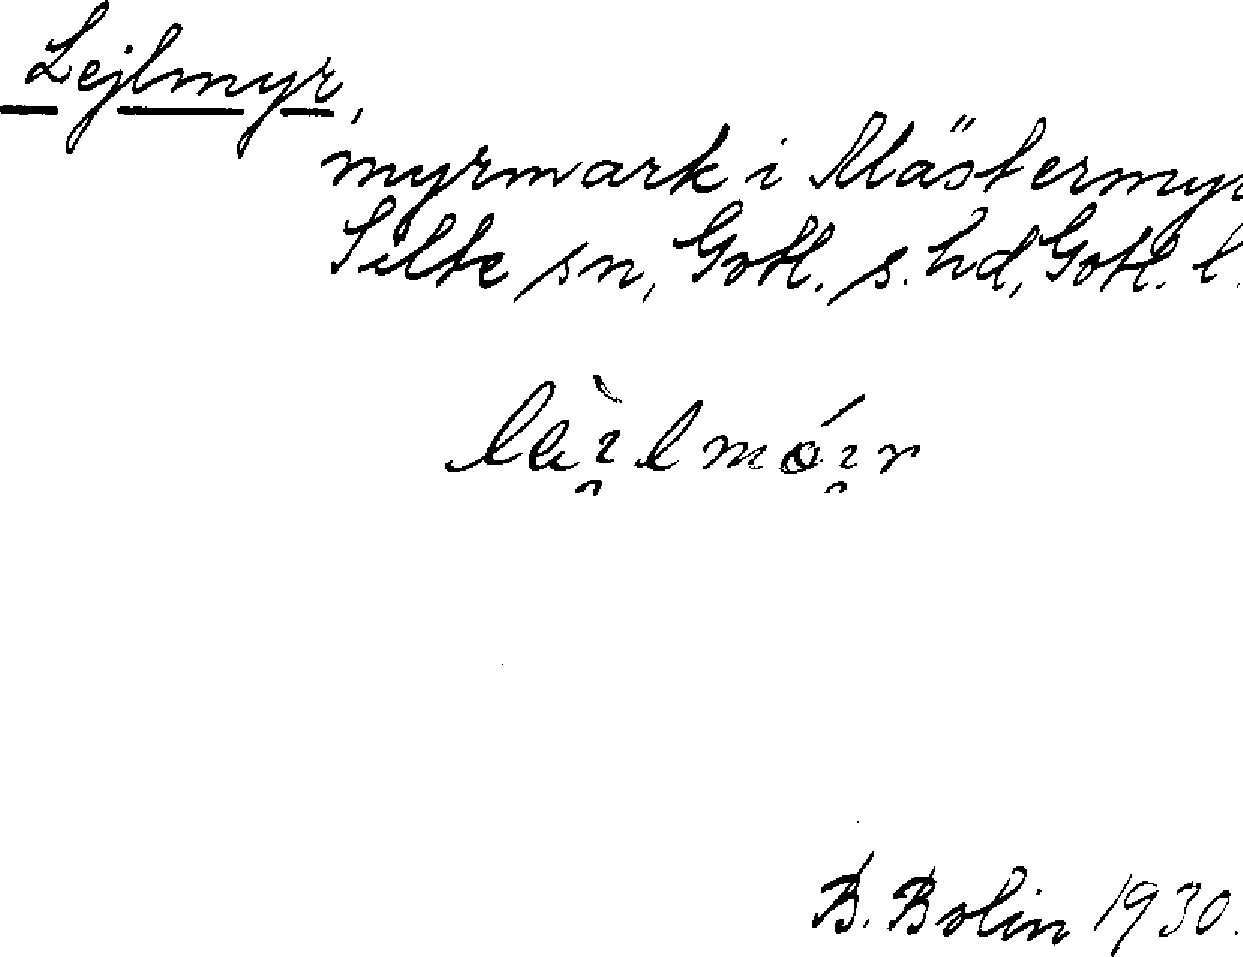 Lejlmyr,
myrmark i Mästermyr
Silte sn, Gotl. s. hd, Gotl. l.
B. Bolin 1930.